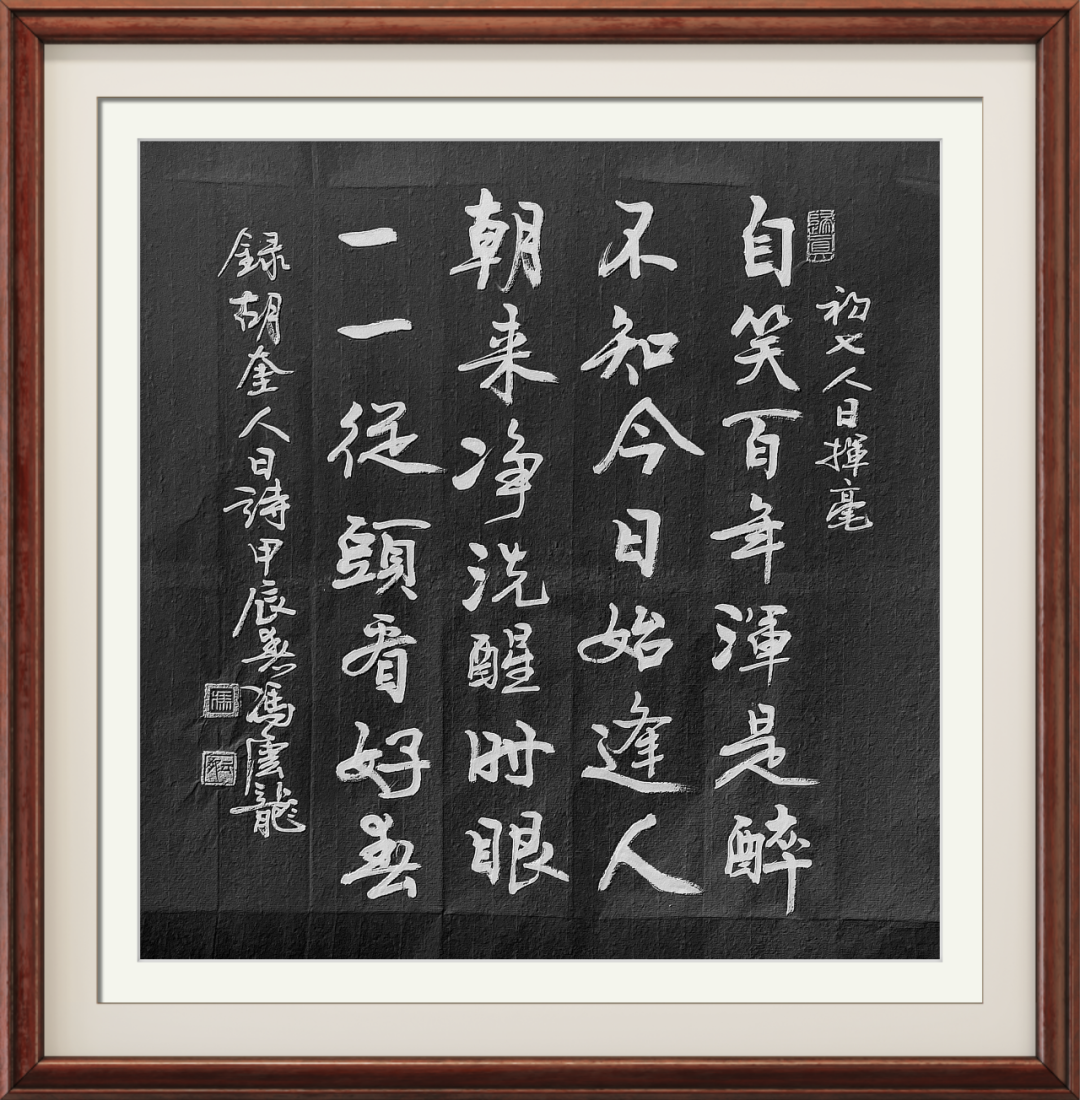 初七人日揮毫
自笑百年渾是醉
不知今日始逢人
朝来净洗醒时眼
一一從頭看好春
録胡奎人日詩甲辰春馮雲龍